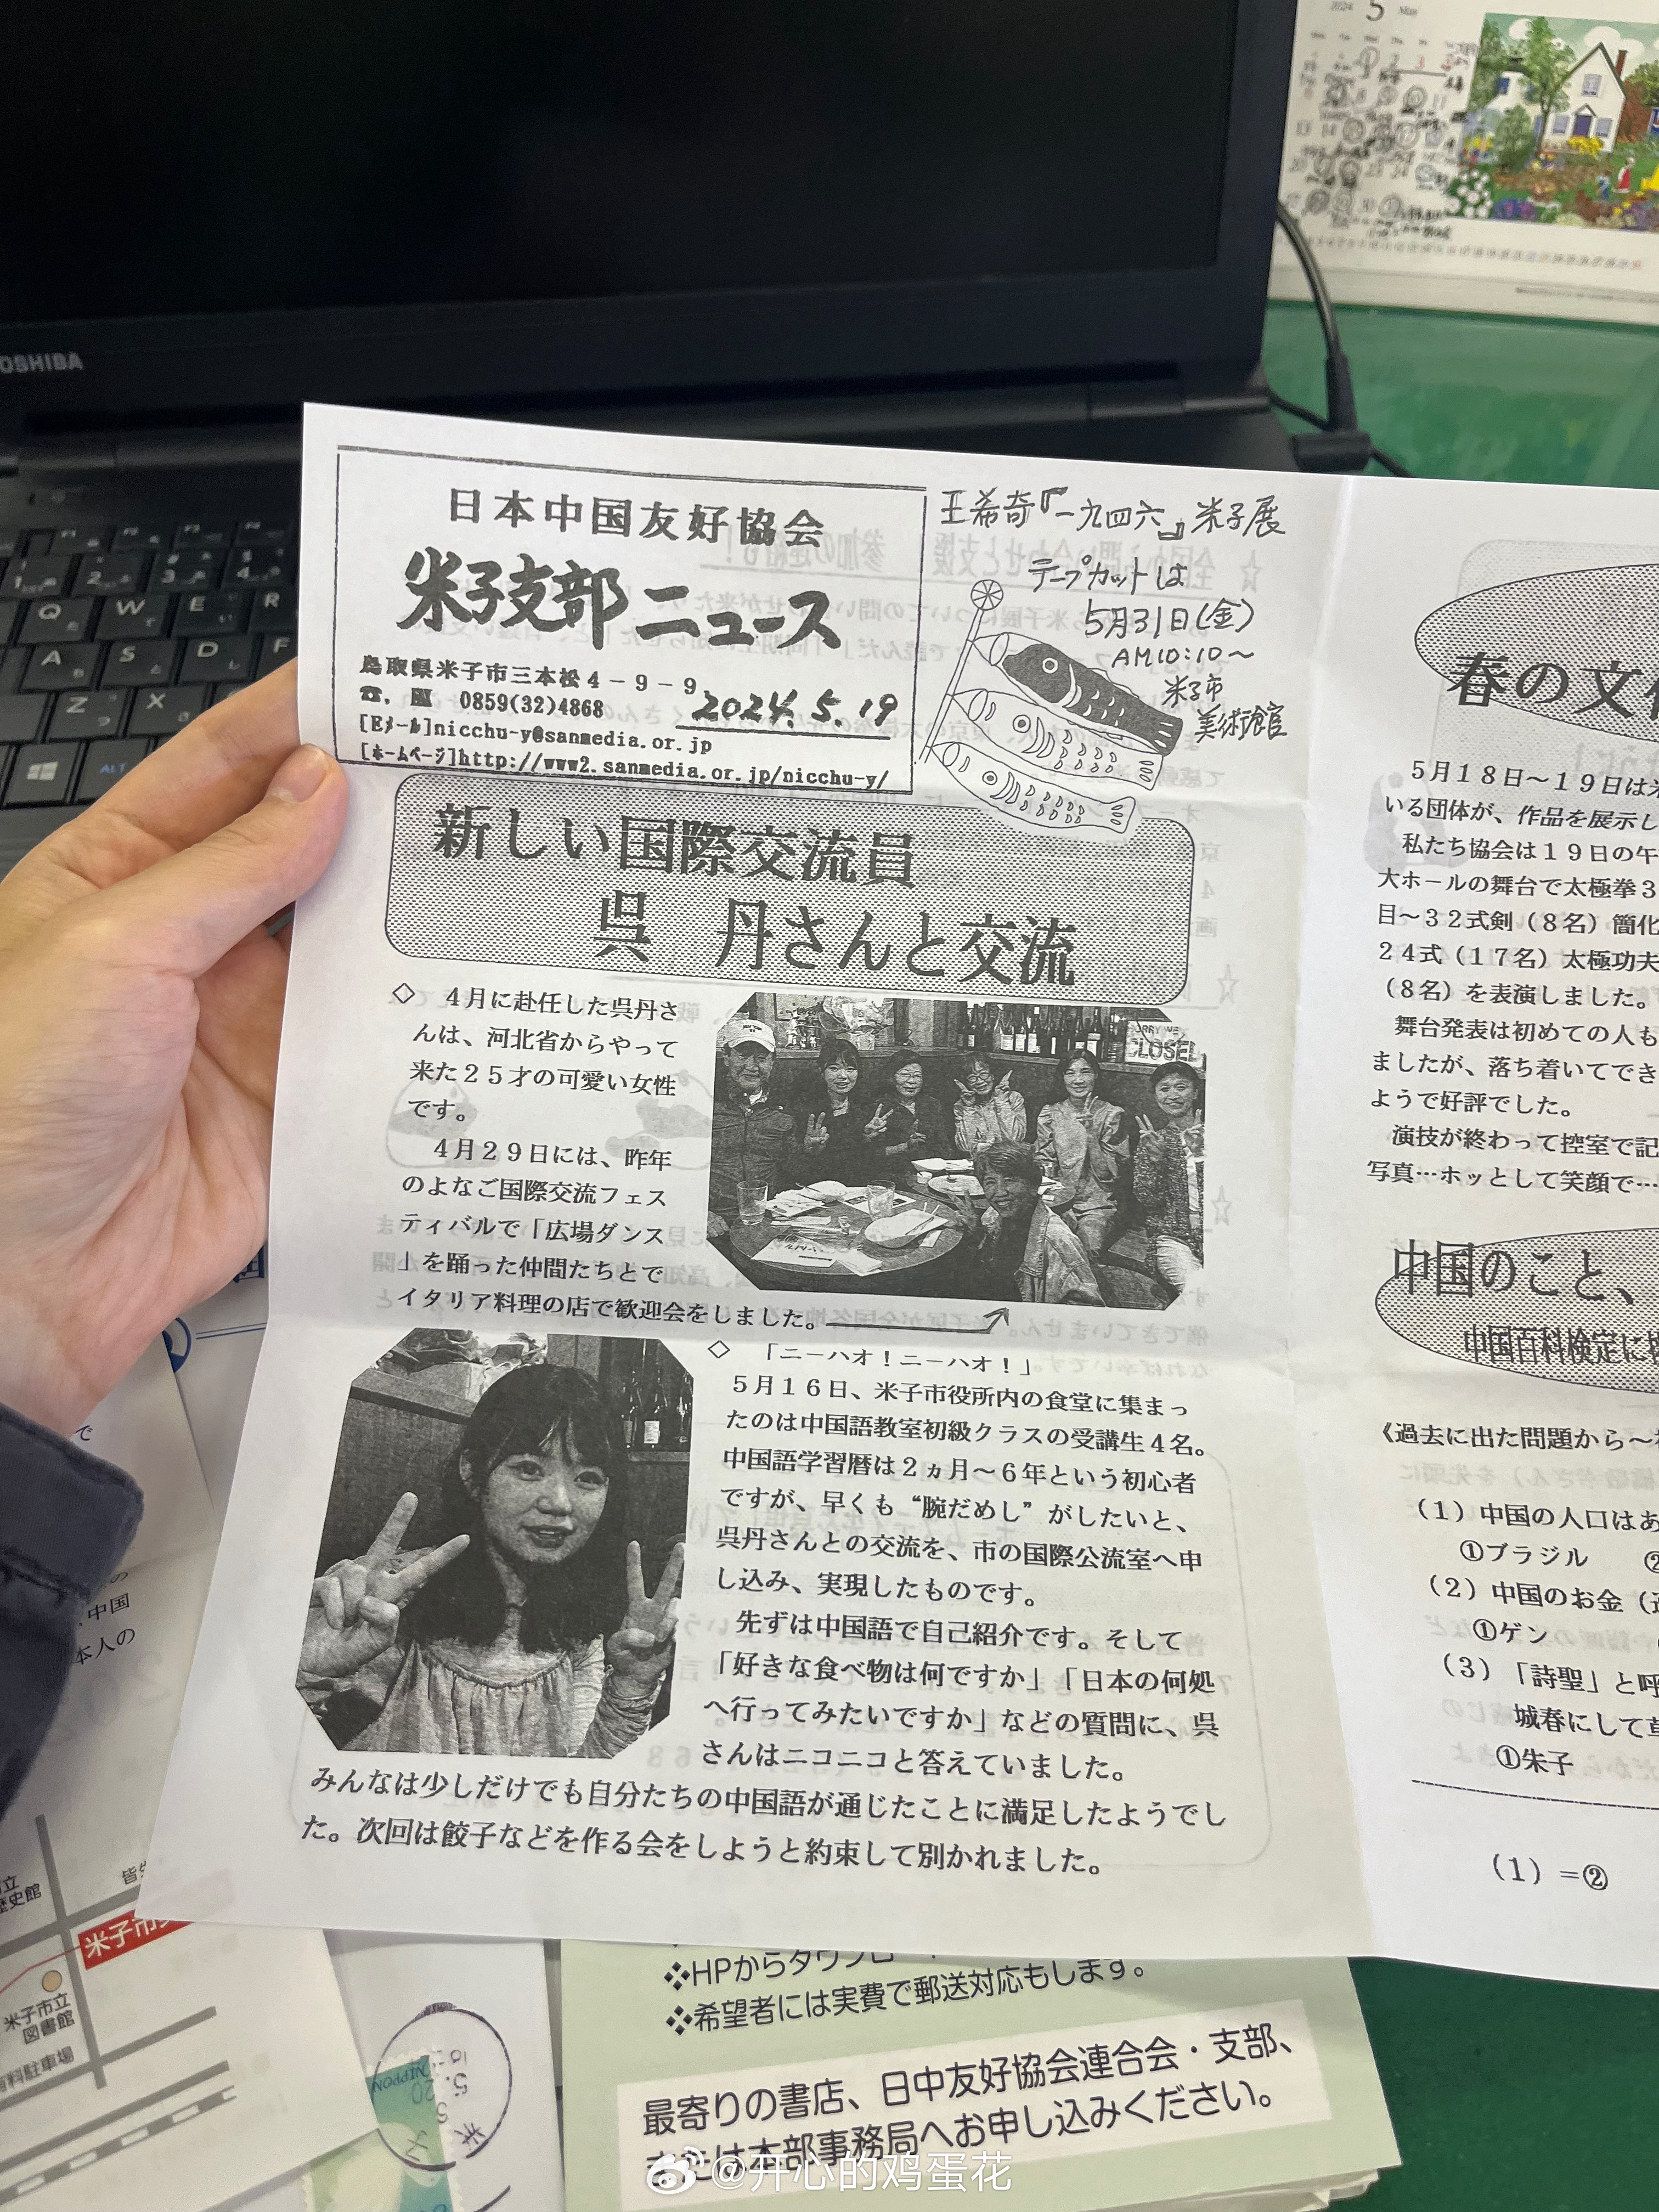 2024 5 May
TOSHIBA
日本中国友好協会
米子支部ニュース
鳥取県米子市三本松4-9-9
☎, 0859(32)4868
2024.5.19
[Eメール]nicchu-y@sanmedia.or.jp
[ホームページ]http://www2.sanmedia.or.jp/nicchu-y/
王希奇『一九四六』米子展
テープカットは
5月31日(金)
AM10:10～
米子市
美術館
新しい国際交流員
呉 丹さんと交流
◇ 4月に赴任した呉丹さ
んは、河北省からやって
来た25才の可愛い女性
です。
4月29日には、昨年
のよなご国際交流フェス
ティバルで「広場ダンス
」を踊った仲間たちとで
イタリア料理の店で歓迎会をしました。
CLOSED
◇ 「ニーハオ！ニーハオ！」
5月16日、米子市役所内の食堂に集まっ
たのは中国語教室初級クラスの受講生4名。
中国語学習暦は2ヵ月～6年という初心者
ですが、早くも“腕だめし”がしたいと、
呉丹さんとの交流を、市の国際公流室へ申
し込み、実現したものです。
先ずは中国語で自己紹介です。そして
「好きな食べ物は何ですか」「日本の何処
へ行ってみたいですか」などの質問に、呉
さんはニコニコと答えていました。
みんなは少しだけでも自分たちの中国語が通じたことに満足したようでし
た。次回は餃子などを作る会をしようと約束して別かれました。
春の文
5月18日～19日は
いる団体が、作品を展示し
私たち協会は19日の午
大ホールの舞台で太極拳3
目～32式剣（8名）簡化
24式（17名）太極功夫
（8名）を表演しました。
舞台発表は初めての人も
ましたが、落ち着いてでき
ようで好評でした。
演技が終わって控室で記
写真…ホッとして笑顔で…
中国のこと、
中国百科検定に
《過去に出た問題から～
（1）中国の人口はあ
①ブラジル
（2）中国のお金（
①ゲン
（3）「詩聖」と呼
城春にして草
①朱子
（1）=②
中国
本人の
歴史館
米子市
米子市立
図書館
有料駐車場
NIPPON
❖HPからダウンロー
❖希望者には実費で郵送対応もします。
最寄りの書店、日中友好協会連合会・支部、
または本部事務局へお申し込みください。
@开心的鸡蛋花